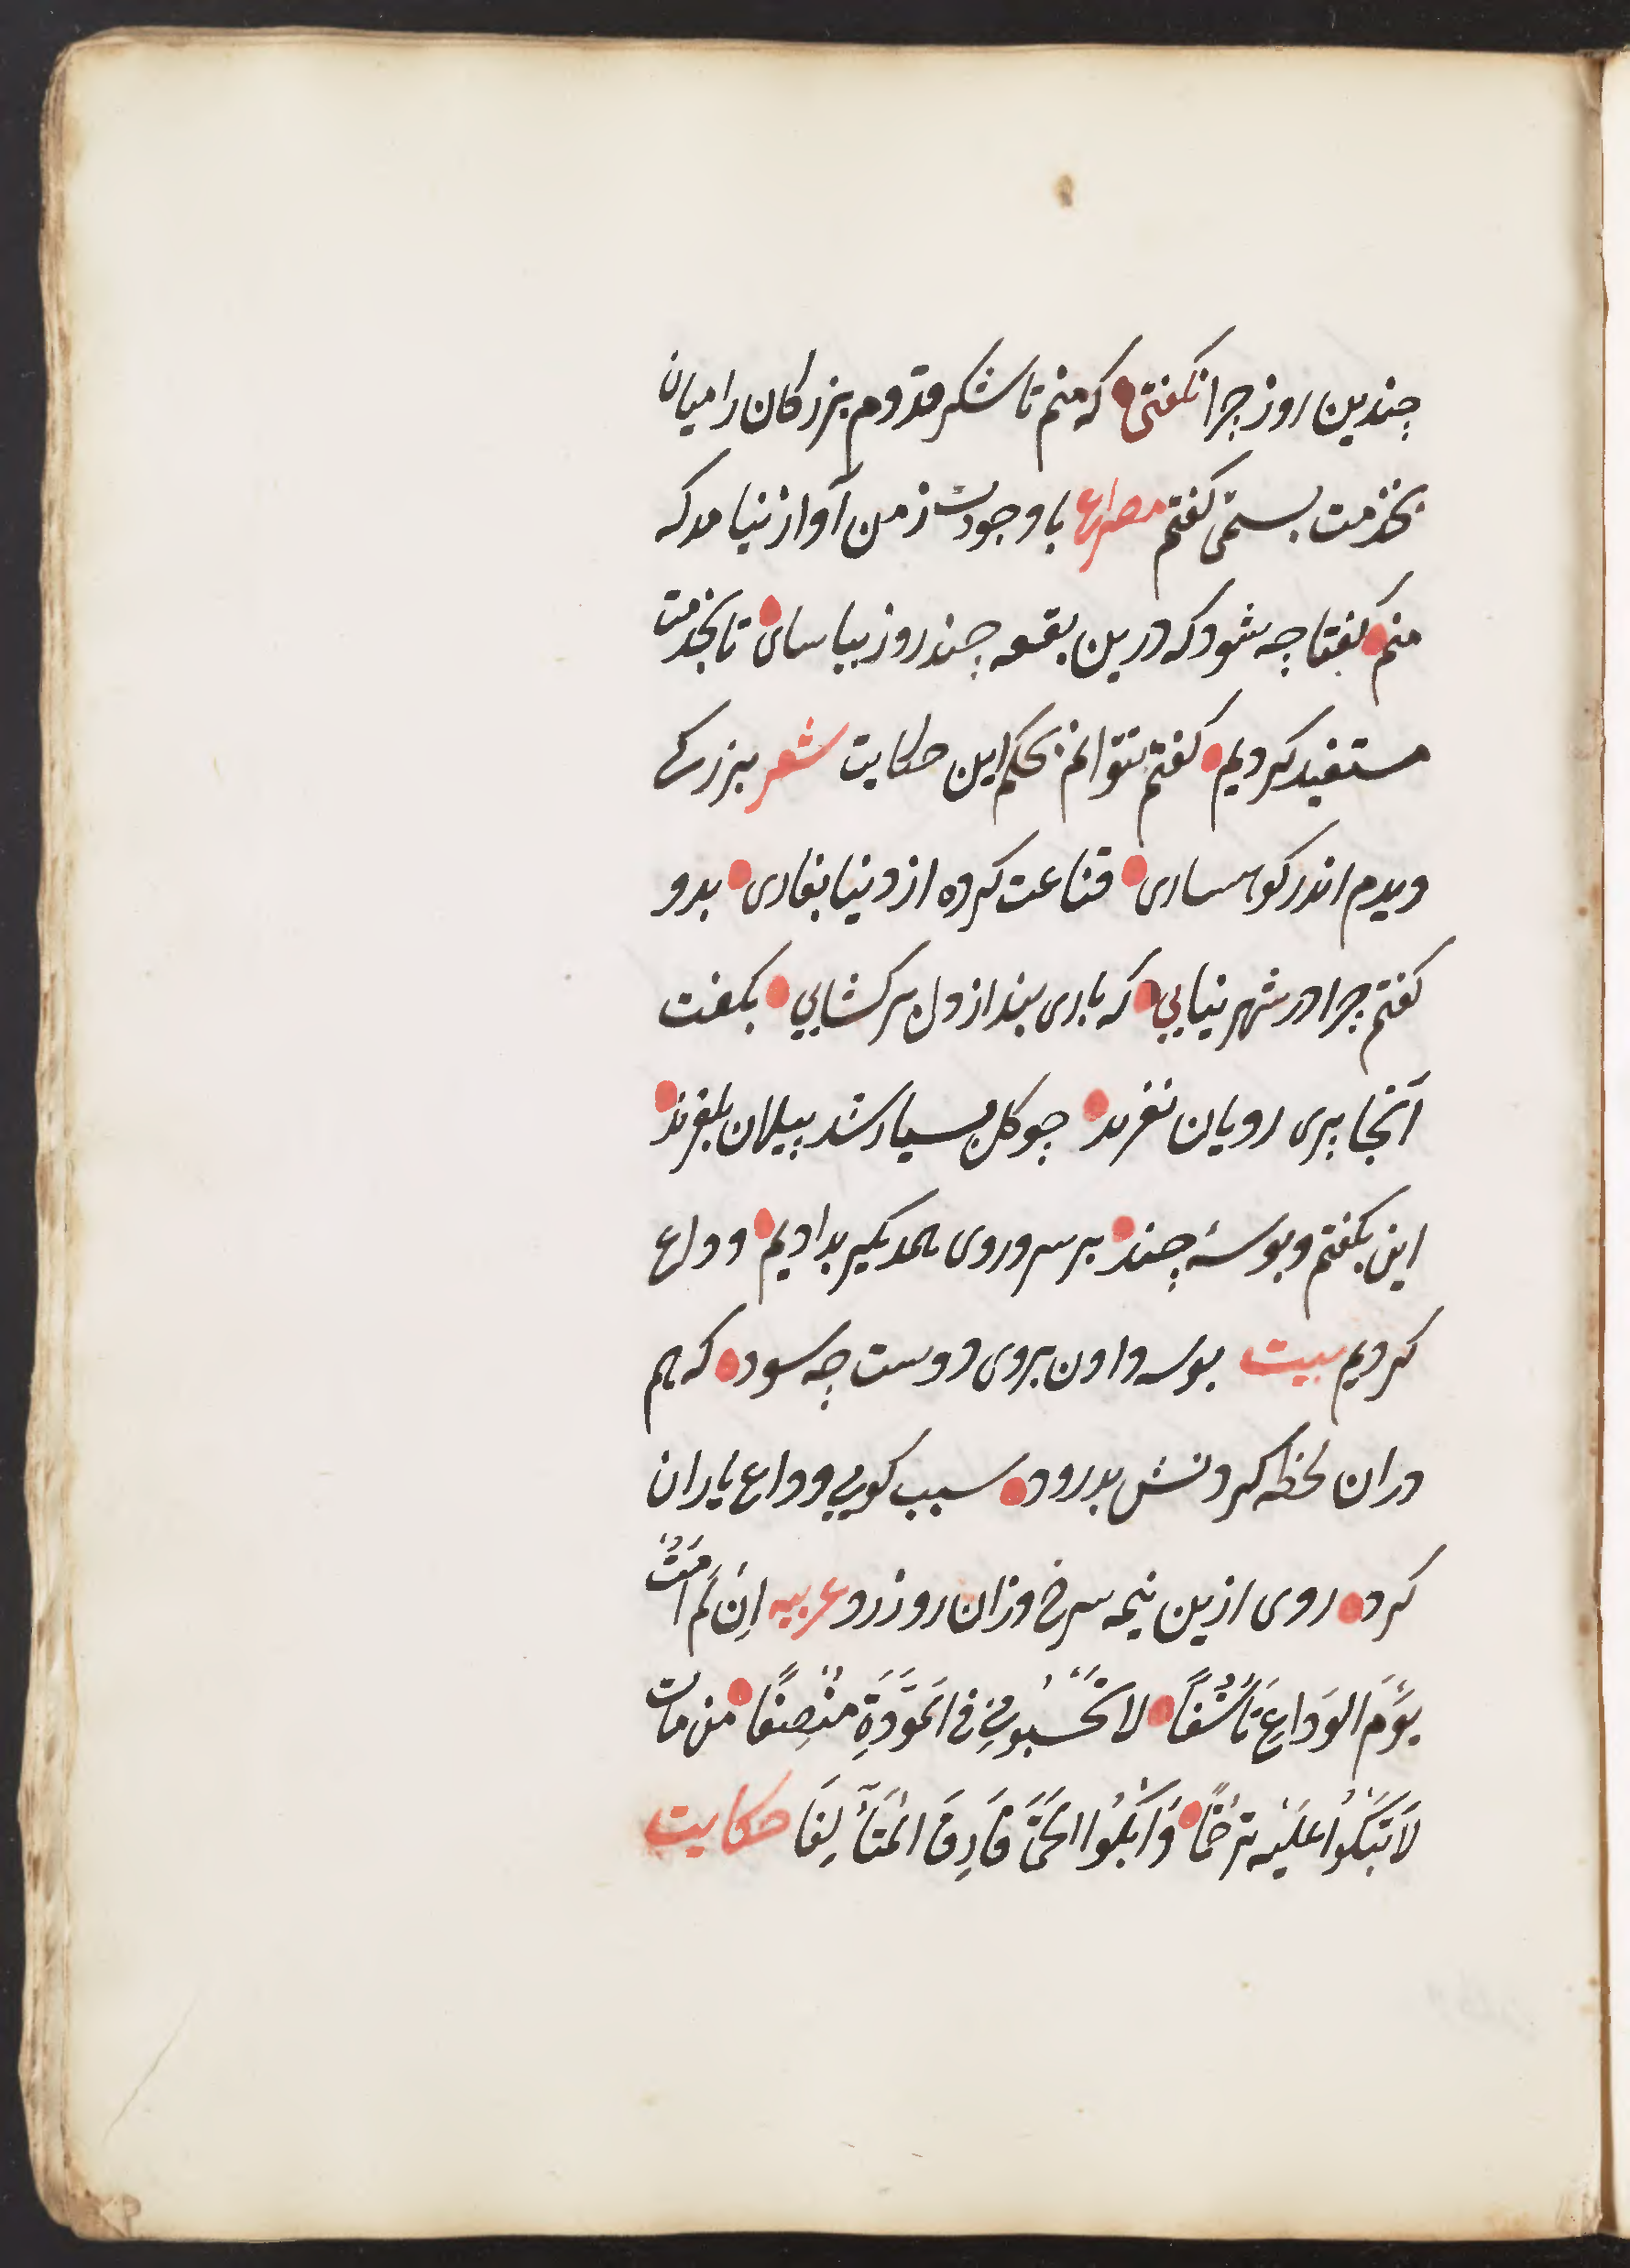 چندین روز چرا نکفتی که منم تا شکر قدوم بزرکان را میان
بخدمت بستمی کفتم مصراع با وجودت ز من آواز نیامد که
منم کفتا چه شود که درین بقعه چند روز بیاسای تا بخدمت
مستفید کردیم کفتم نتوانم بحکم این حکایت شعر بزرکی
دیدم اندر کوهساری قناعت کرده از دنیا بغاری بدو
کفتم چرا در شهر نیایی که باری بند از دل بر کشایی بکفت
آنجا پری رویان نغزند چو کل بسیار شد پیلان بلغزند
این بکفتم و بوسهٔ چند بر سر و روی همدیکر بدادیم و وداع
کردیم بیت بوسه دادن بروی دوست چه سود که هم
دران لحظه کردنش بدرود سیب کویی وداع یاران
کرد روی ازین نیمه سرخ وزان رو زرد عربیه اِن لَم اَمُتْ
یَوْمَ الوَداعِ تَأَسُّفاً لا تَحْسَبُونِی فی المَوَدَّةِ مُنْصِفًا من مات
لَا تَبْکُوا عَلَیْهِ تَرَحُّمًا وَابْکُوا لِحَیٍّ فَارَقَ الْمُتَآلِفَا حکایت